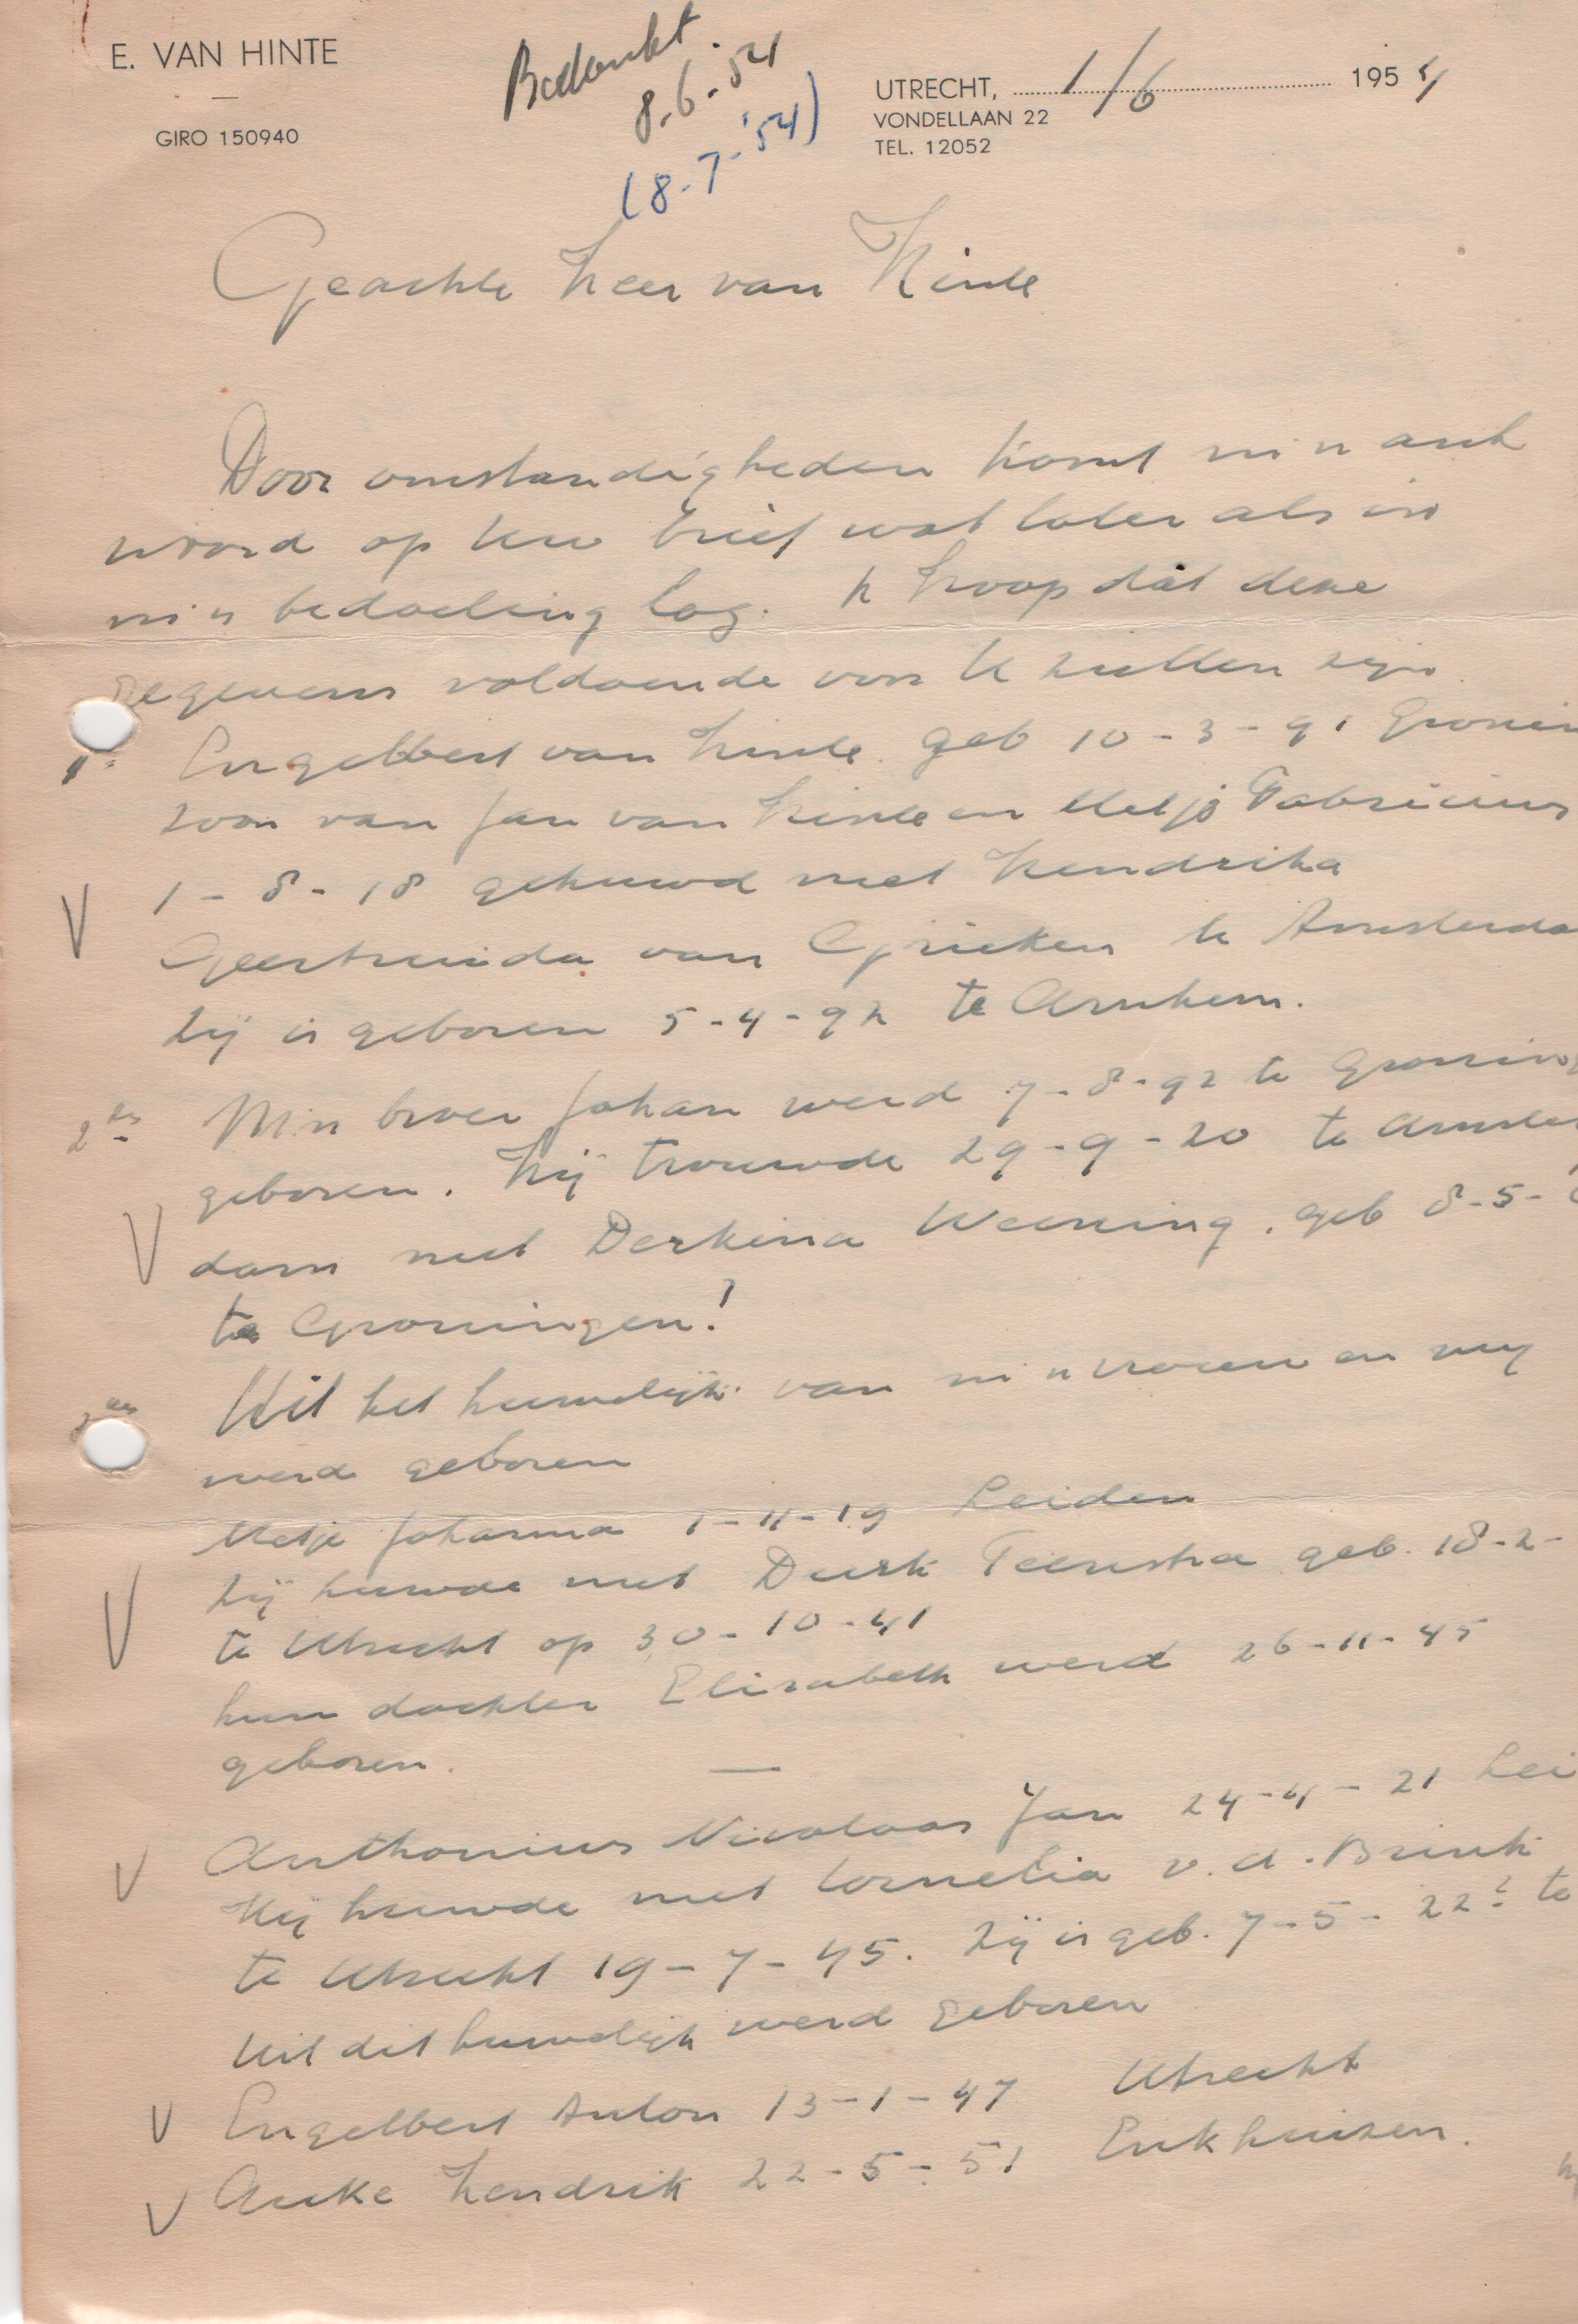 E. VAN HINTE
GIRO 150940
Bedankt.
8.6.54
(8-7-'54)
UTRECHT, 1/6 1954
VONDELLAAN 22
TEL. 12052
Geachte Heer van Hinte
Door omstandigheden komt m'n ant
woord op Uw brief wat later als in
m'n bedoeling lag. Ik hoop dat deze
gegevens voldoende voor U zullen zijn
1e Engelbert van Hinte. geb 10-3-91 Gronin
zoon van Jan van Hinte en Metje Fabricius
V 1-8-18 gehuwd met Hendrika
Geertruida van Grieken te Amsterda
Zij is geboren 5-4-92 te Arnhem.
2de M'n broer Johan werd 7-8-92 te Groning
geboren. Hij trouwde 29-9-20 te Amster
V dam met Derkina Weening. geb 8-5-
te Groningen!
Uit het huwelijk van m'n vrouw en mij
werd geboren
Metje Johanna 1-11-19 Leiden
V Zij huwde met Durk Feenstra geb. 18-2-
te Utrecht op 30-10-41
hun dochter Elisabeth werd 26-11-45
geboren. —
V Anthonius Nicolaas Jan 24-4-21 Lei
Hij huwde met Cornelia v.d. Brink
te Utrecht 19-7-45. Zij is geb. 7-5-22? te
Uit dit huwelijk werd geboren
V Engelbert Anton 13-1-47 Utrecht
V Auke Hendrik 22-5-51 Enkhuizen.